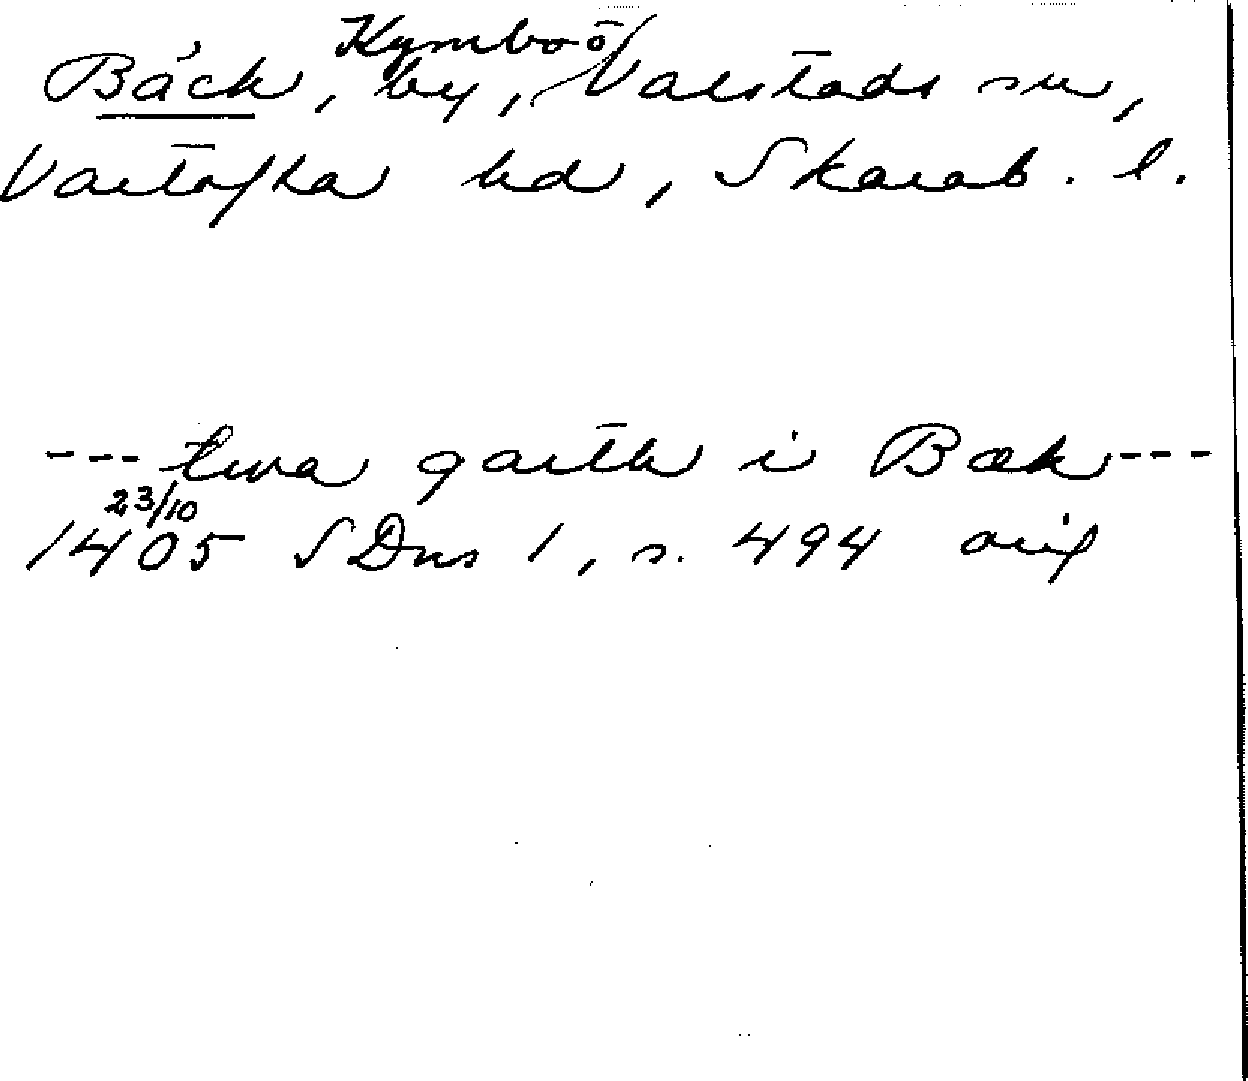 Kymbo ö/
Bäck, by, Valstads sn,
Vartofta hd, Skarab. l.
--- twa garth i Bæk ---
23/10
1405 SDns 1, s. 494 orig